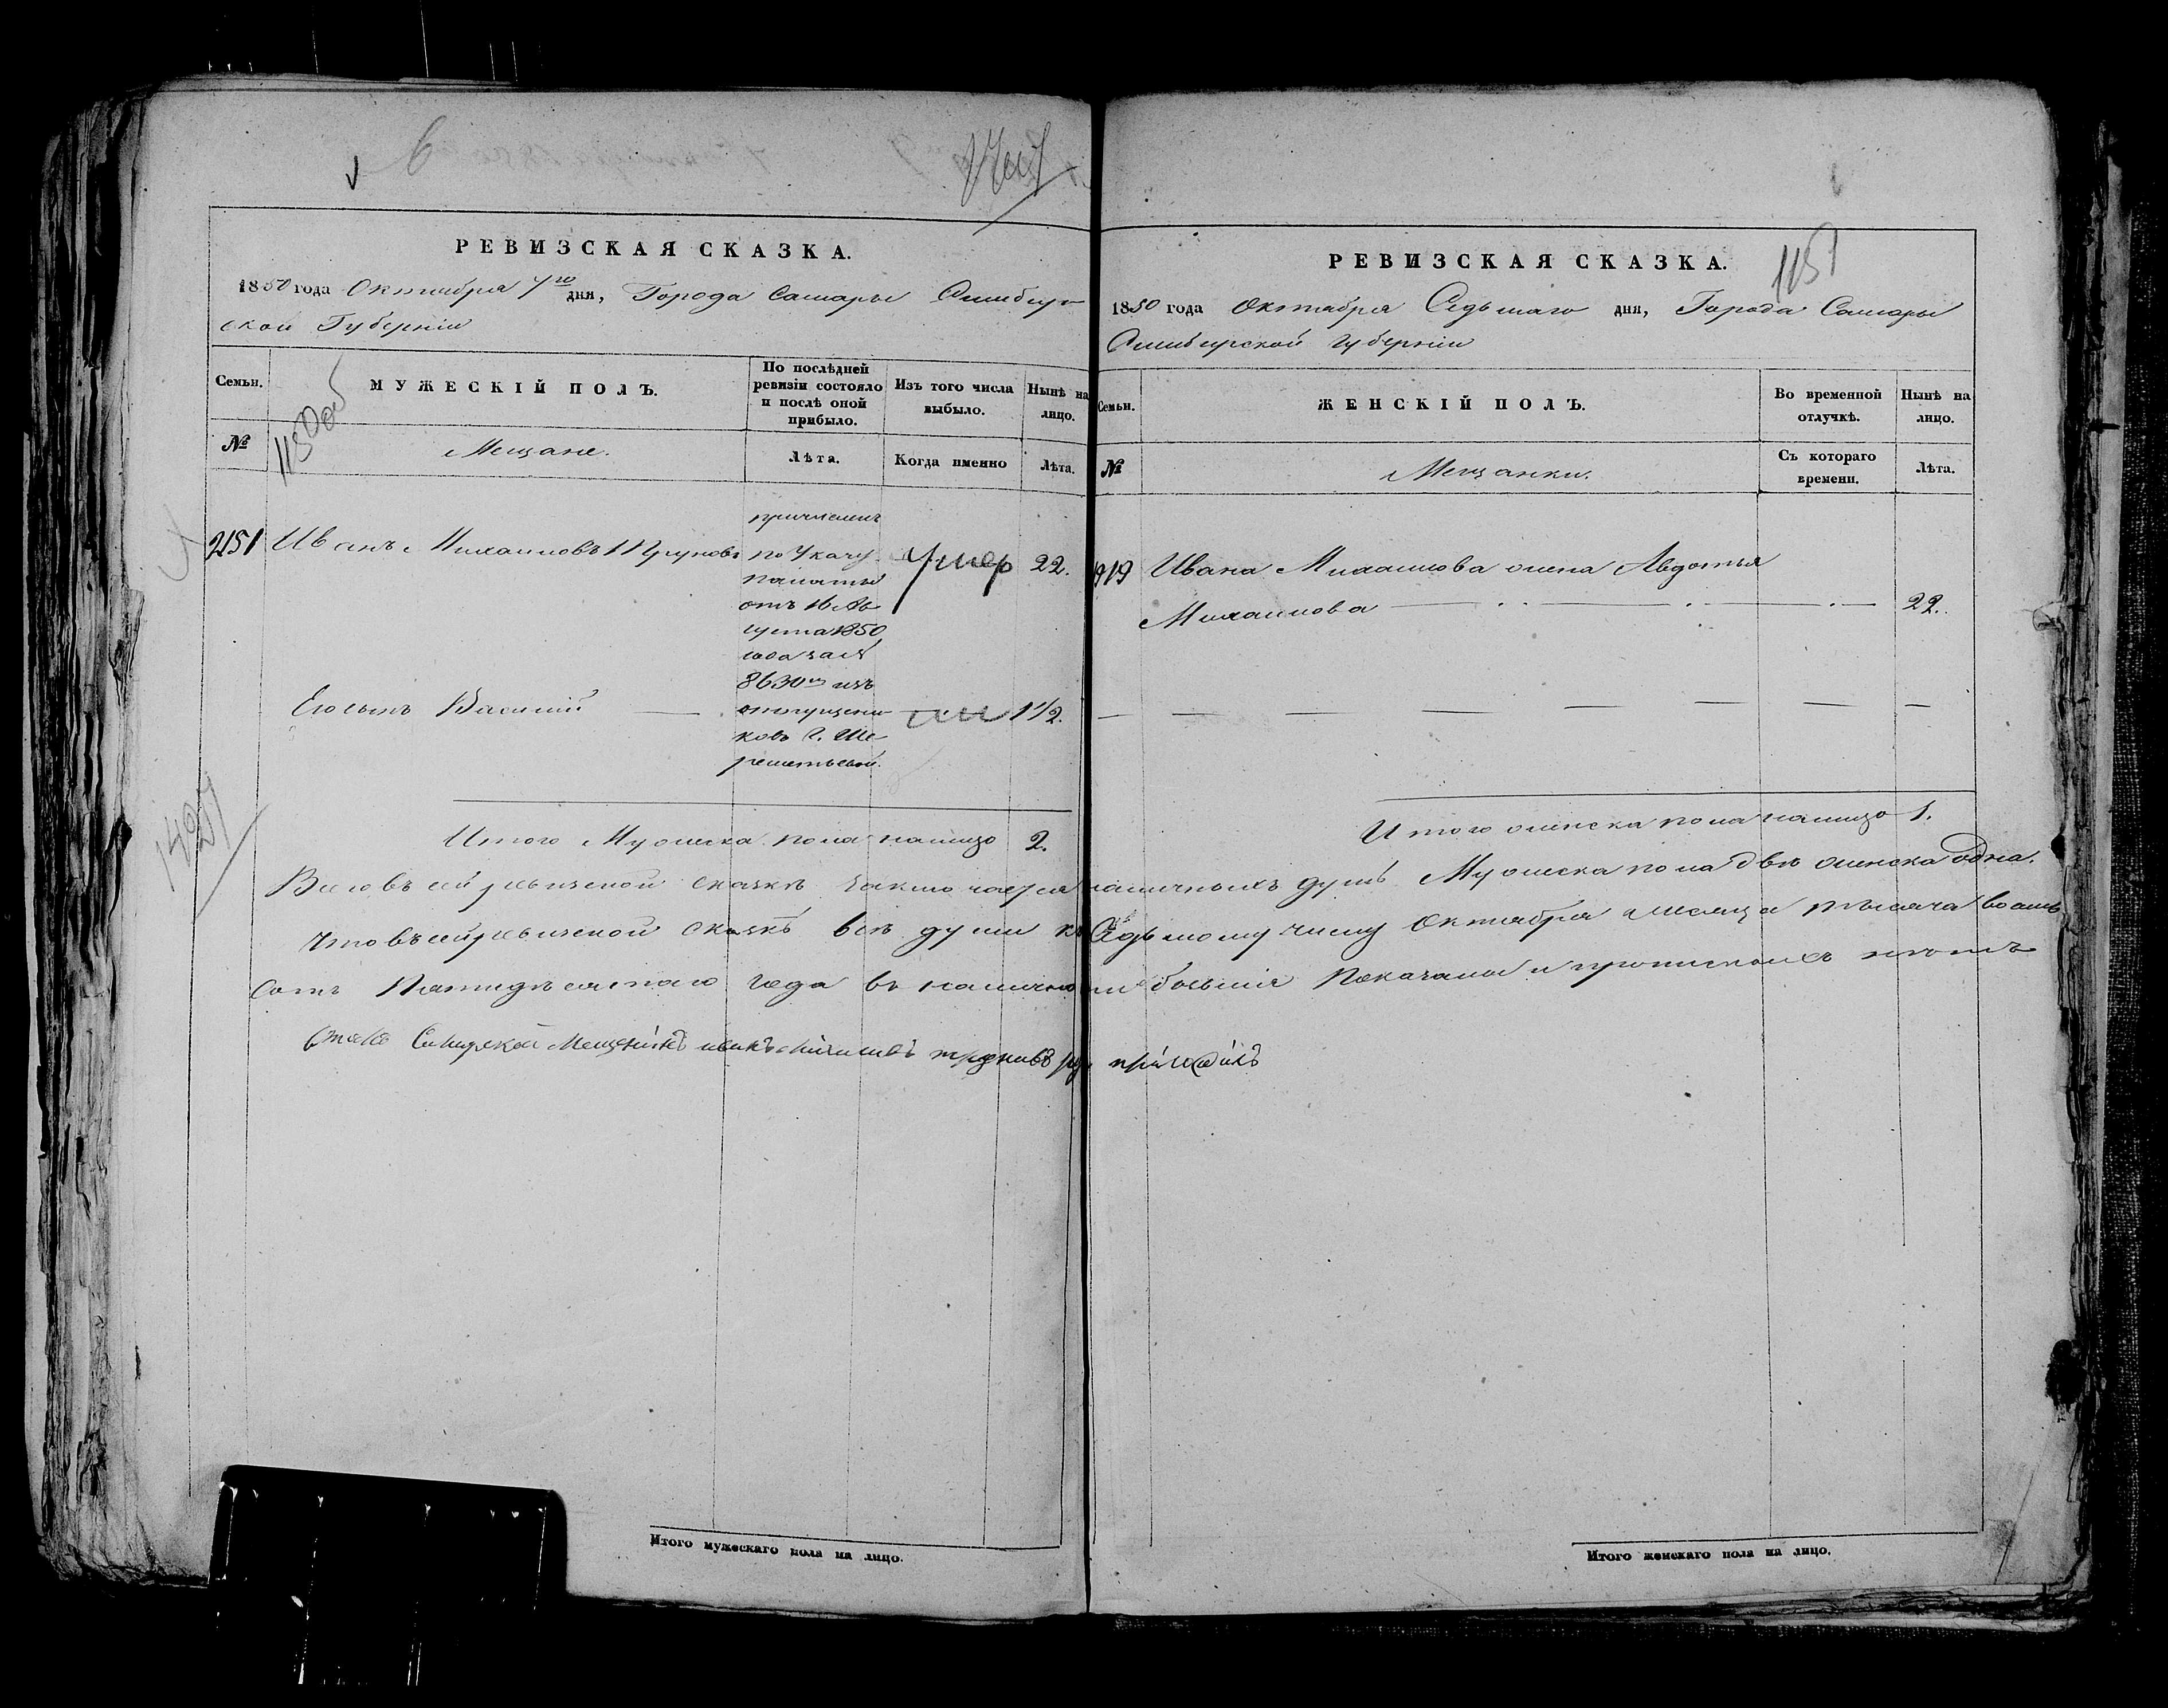 6
РЕВИЗСКАЯ СКАЗКА.
1850 года Октября 7го дня, Города Самары Симбир-
ской Губернии
Семьи.
МУЖЕСКІЙ ПОЛЪ.
По послѣдней ревизіи состояло и послѣ оной прибыло.
Изъ того числа выбыло.
Нынѣ на лицо.
№
1150об
Мещане.
Лѣта.
Когда именно
Лѣта.
причислен
2151 Иванъ Михаиловъ по Указу умер 22.
палаты
отъ 16 Ав
густа 1850
года за №
8630м изъ
Его сынъ Василий отпущени 1 1/2.
ковъ Г. Ше
реметьевой.
Итого Мужеска пола налицо 2.
1151
РЕВИЗСКАЯ СКАЗКА.
1850 года Октября Седьмаго дня, Города Самары
Симбирской Губернии
Семьи.
ЖЕНСКІЙ ПОЛЪ.
Во временной отлучкѣ.
Нынѣ на лицо.
№
Мещанки.
Съ котораго времени.
Лѣта.
1919 Ивана Михаилова жена Авдотья
Михаилова 22.
Итого женска пола налицо 1.
Всего въ сей ревизской сказкѣ заключается наличныхъ душъ Мужеска пола двѣ женска одна.
Что въ сей ревизской сказкѣ всѣ души къ Седьмому числу Октября месяца тысяча восемь
сотъ Пятидесятаго года въ наличности бывшия Показаны и прописныхъ нѣтъ
Мещенинъ иванъ
Итого мужескаго пола на лицо.
Итого женскаго пола на лицо.